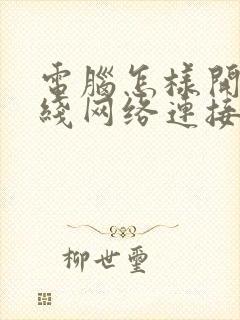 電腦怎樣開
綫网络連接
柳世璽